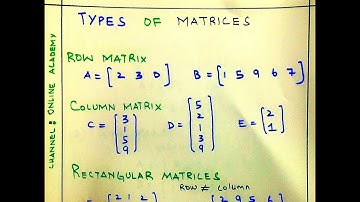 TYPES OF MATRICES
ROW MATRIX
A = [2 3 0] B = [1 5 9 6 7]
COLUMN MATRIX
C = [3 1 5 9] D = [5 2 1 3 9] E = [2 1]
RECTANGULAR MATRICES
ROW ≠ COLUMN
[2 1 2] [2 9 5 6]
CHANNEL: ONLINE ACADEMY